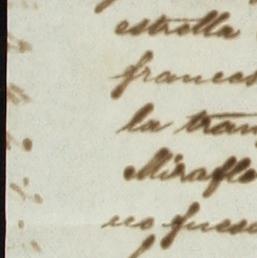 estrella
frances
la tran
Mirafle
no fuese